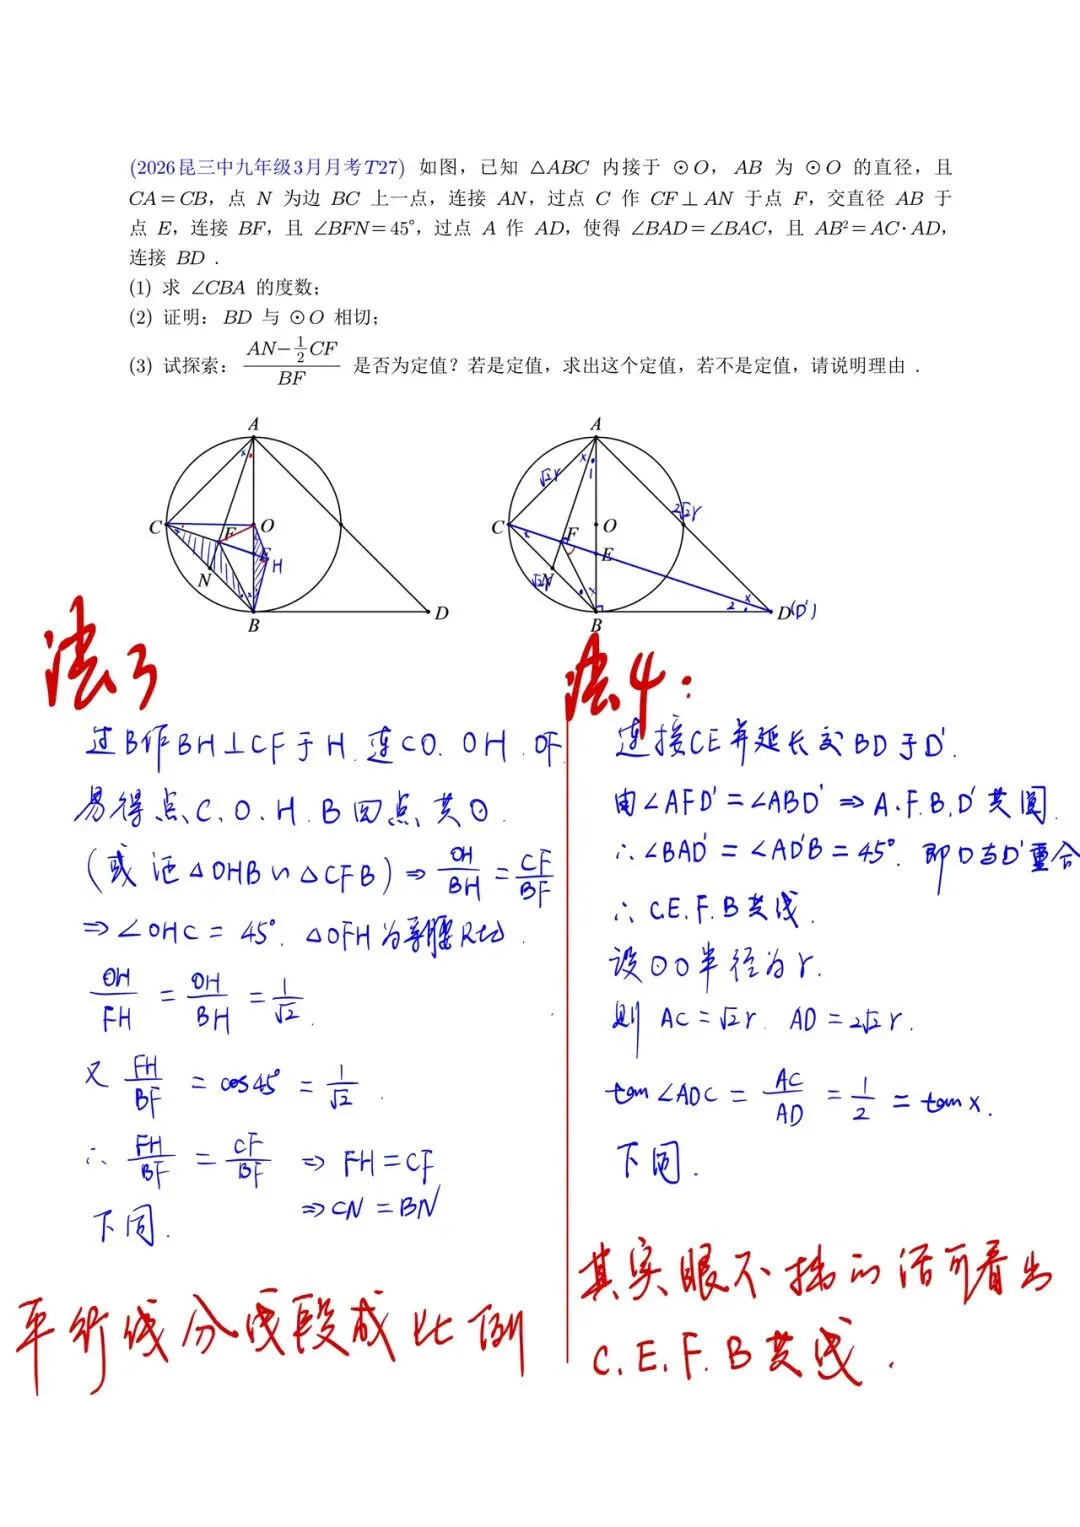 (2026昆三中九年级3月月考T27) 如图，已知 △ABC 内接于 ⊙O，AB 为 ⊙O 的直径，且
CA=CB，点 N 为边 BC 上一点，连接 AN，过点 C 作 CF⊥AN 于点 F，交直径 AB 于
点 E，连接 BF，且 ∠BFN=45°，过点 A 作 AD，使得 ∠BAD=∠BAC，且 AB²=AC·AD，
连接 BD．
(1) 求 ∠CBA 的度数；
(2) 证明：BD 与 ⊙O 相切；
(3) 试探索：(AN-½CF)/BF 是否为定值？若是定值，求出这个定值，若不是定值，请说明理由．
A
C
O
F
E
H
N
B
D
A
x
1
√2r
2√2r
C
O
F
E
N
√2r
x
x
2
D(D')
B
法3
过B作BH⊥CF于H.连CO.OH.OF
易得点C.O.H.B四点共⊙.
(或证△OHB∽△CFB)⇒OH/BH=CF/BF
⇒∠OHC=45°.△OFH为等腰Rt△.
OH/FH=OH/BH=1/√2.
又 FH/BF=cos45°=1/√2.
∴FH/BF=CF/BF⇒FH=CF
⇒CN=BN
下同.
平行线分线段成比例
法4:
连接CE并延长交BD于D'.
由∠AFD'=∠ABD'⇒A.F.B.D'共圆.
∴∠BAD'=∠AD'B=45°.即D与D'重合
∴C.E.F.B共线.
设⊙O半径为r.
则 AC=√2r. AD=2√2r.
tan∠ADC=AC/AD=1/2=tanx.
下同.
其实眼不拙的话可看出
C.E.F.B共线.